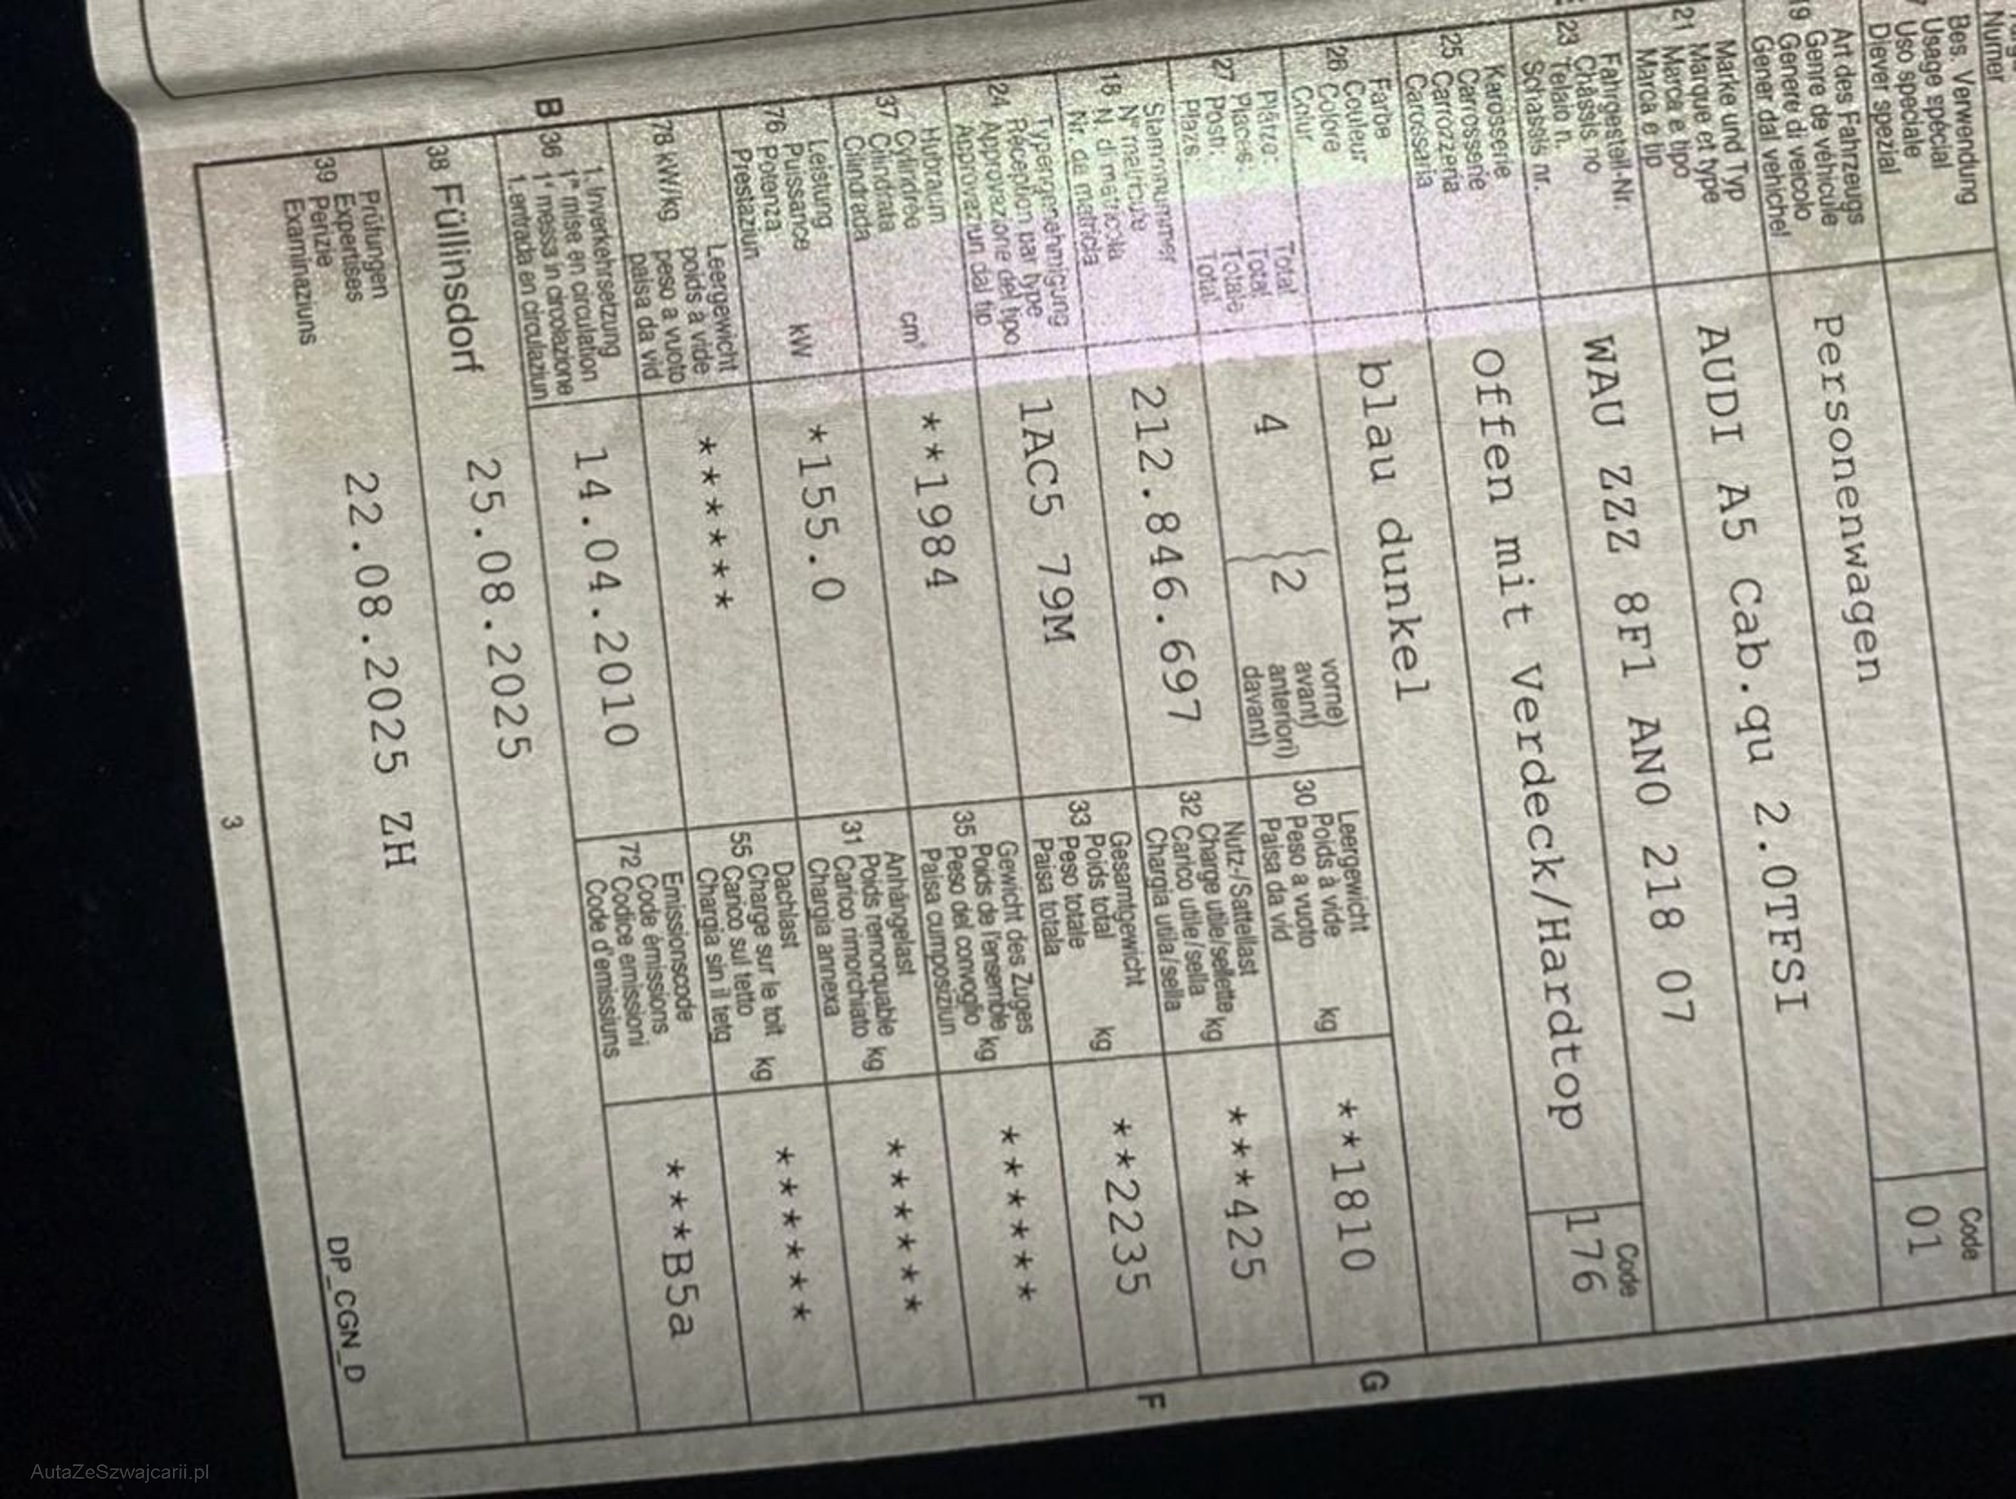 Numer
Bes. Verwendung
Usage spécial
Uso speciale
Diever spezial
Code
01
Art des Fahrzeugs
19 Genre de véhicule
Genere di veicolo
Gener dal vehichel
Personenwagen
Marke und Typ
21 Marque et type
Marca e tipo
Marca e tip
AUDI A5 Cab.qu 2.0TFSI
Fahrgestell-Nr.
23 Châssis no
Telaio n.
Schassis nr.
WAU ZZZ 8F1 AN0 218 07
Karosserie
25 Carrosserie
Carrozzeria
Carossaria
Offen mit Verdeck/Hardtop
Code
176
Farbe
26 Couleur
Colore
Colur
blau dunkel
Plätze: Total
27 Places: Total
Posti: Totale
Plazs: Total
4 2
vorne)
avant)
anteriori)
davant)
Leergewicht
30 Poids à vide
Peso a vuoto kg
Paisa da vid
**1810
G
Stammnummer
18 N° matricule
N. di matricola
Nr. da matricla
212.846.697
Nutz-/Sattellast
32 Charge utile/sellette kg
Carico utile/sella
Chargia utila/sella
***425
Typengenehmigung
24 Réception par type
Approvazione del tipo
Approvaziun dal tip
1AC5 79M
Gesamtgewicht
33 Poids total kg
Peso totale
Paisa totala
**2235
F
Hubraum
37 Cylindrée cm³
Cilindrata
Cilindrada
**1984
Gewicht des Zuges
35 Poids de l'ensemble kg
Peso del convoglio
Paisa cumposiziun
******
Leistung
76 Puissance kW
Potenza
Prestaziun
*155.0
Anhängelast
31 Poids remorquable kg
Carico rimorchiato
Chargia annexa
******
78 kW/kg
Leergewicht
poids à vide
peso a vuoto
paisa da vid
******
Dachlast
55 Charge sur le toit kg
Carico sul tetto
Chargia sin il tetg
******
B 36 1. Inverkehrsetzung
1re mise en circulation
1a messa in circolazione
1. entrada en circulaziun
14.04.2010
Emissionscode
72 Code émissions
Codice emissioni
Code d'emissiuns
***B5a
38 Füllinsdorf 25.08.2025
Prüfungen
39 Expertises
Perizie
Examinaziuns
22.08.2025 ZH
3
DP_CGN_D
AutaZeSzwajcarii.pl